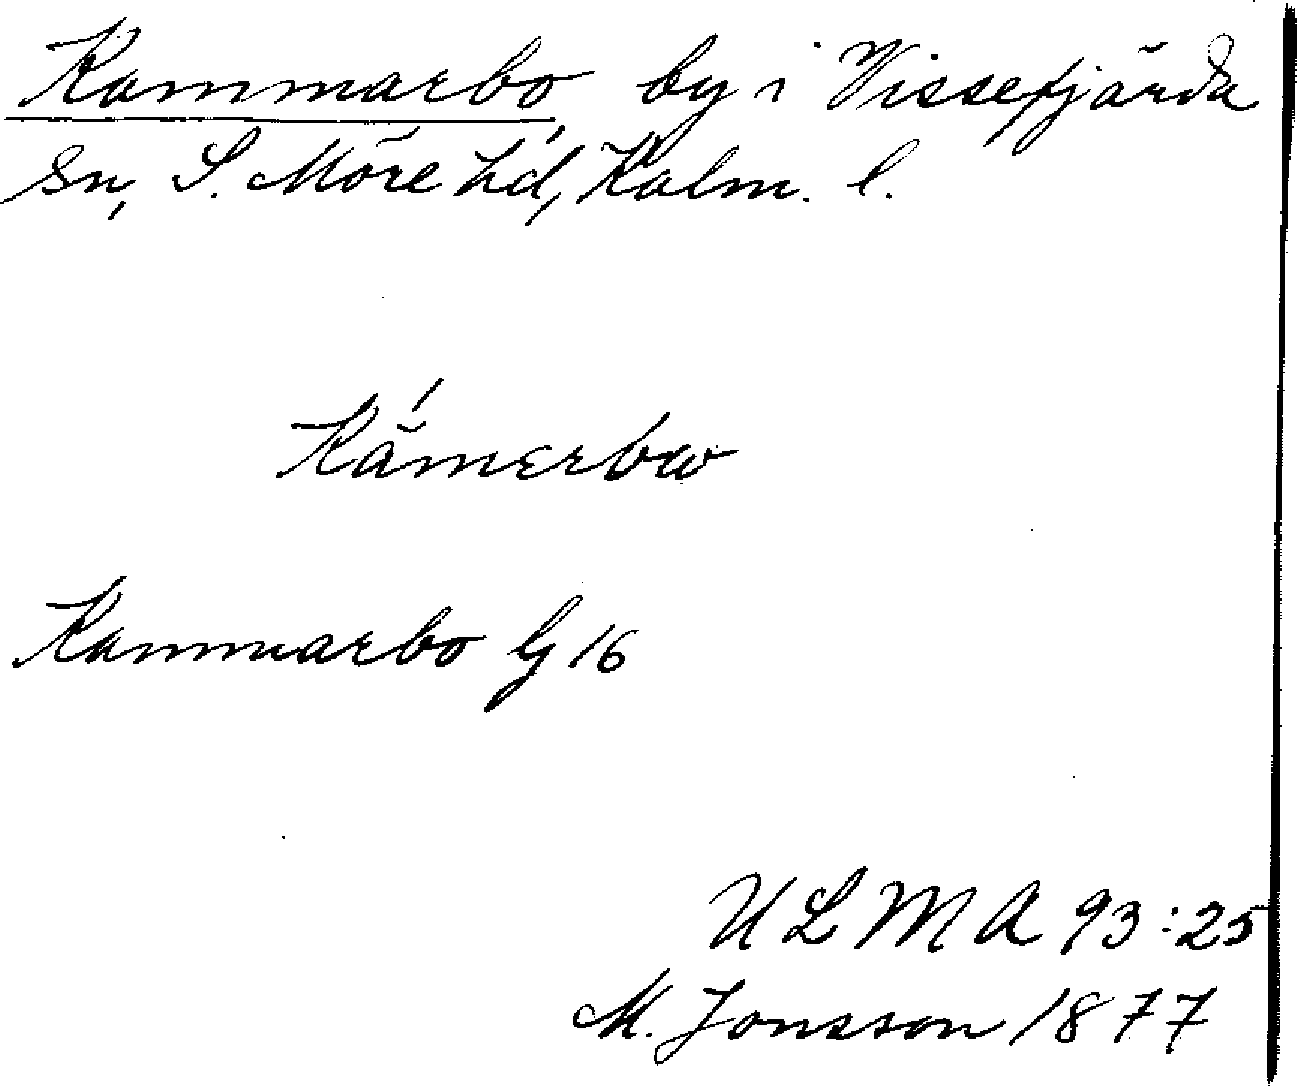 Kammarbo, by i Vissefjärda
sn, S. Möre hd, Kalm. l.
Kám̆erbω
Kammarbo G 16
ULMA 93:25
M. Jonsson 1877